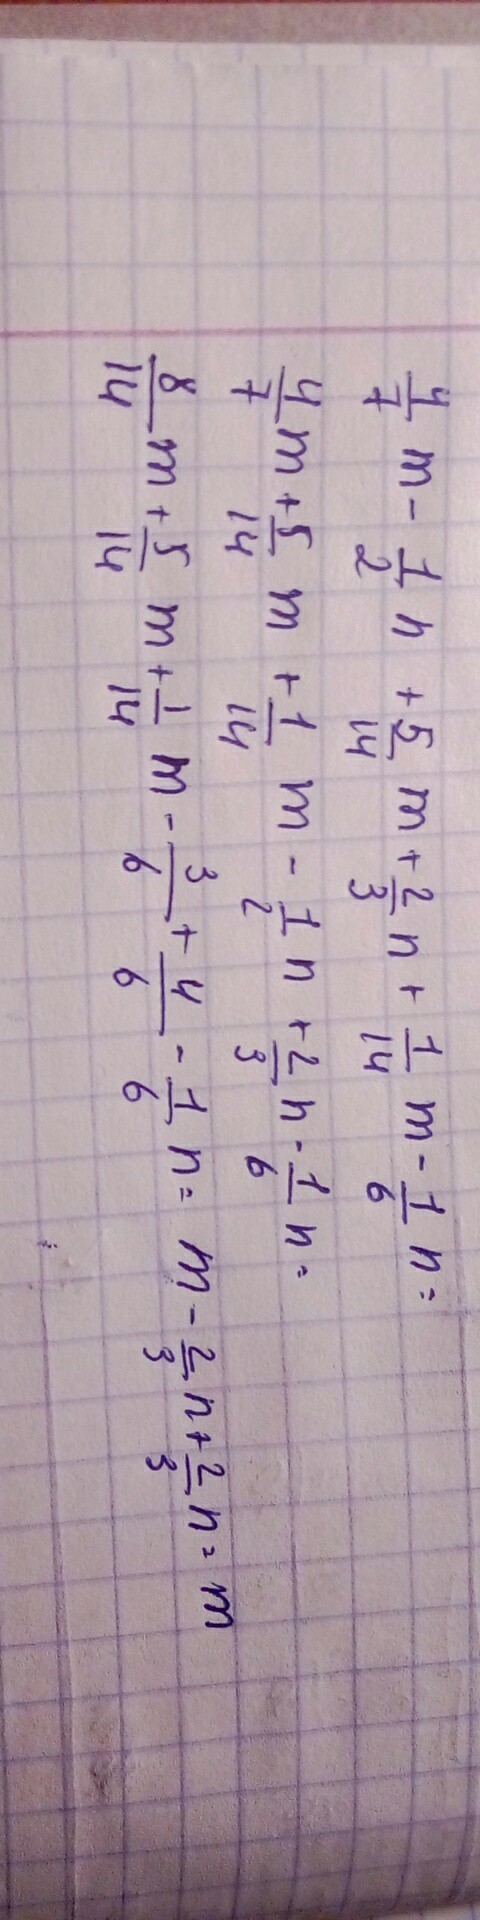 4/7 m - 1/2 n + 5/14 m + 2/3 n + 1/14 m - 1/6 n =
4/7 m + 5/14 m + 1/14 m - 1/2 n + 2/3 n - 1/6 n =
8/14 m + 5/14 m + 1/14 m - 3/6 + 4/6 - 1/6 n = m - 2/3 n + 2/3 n = m